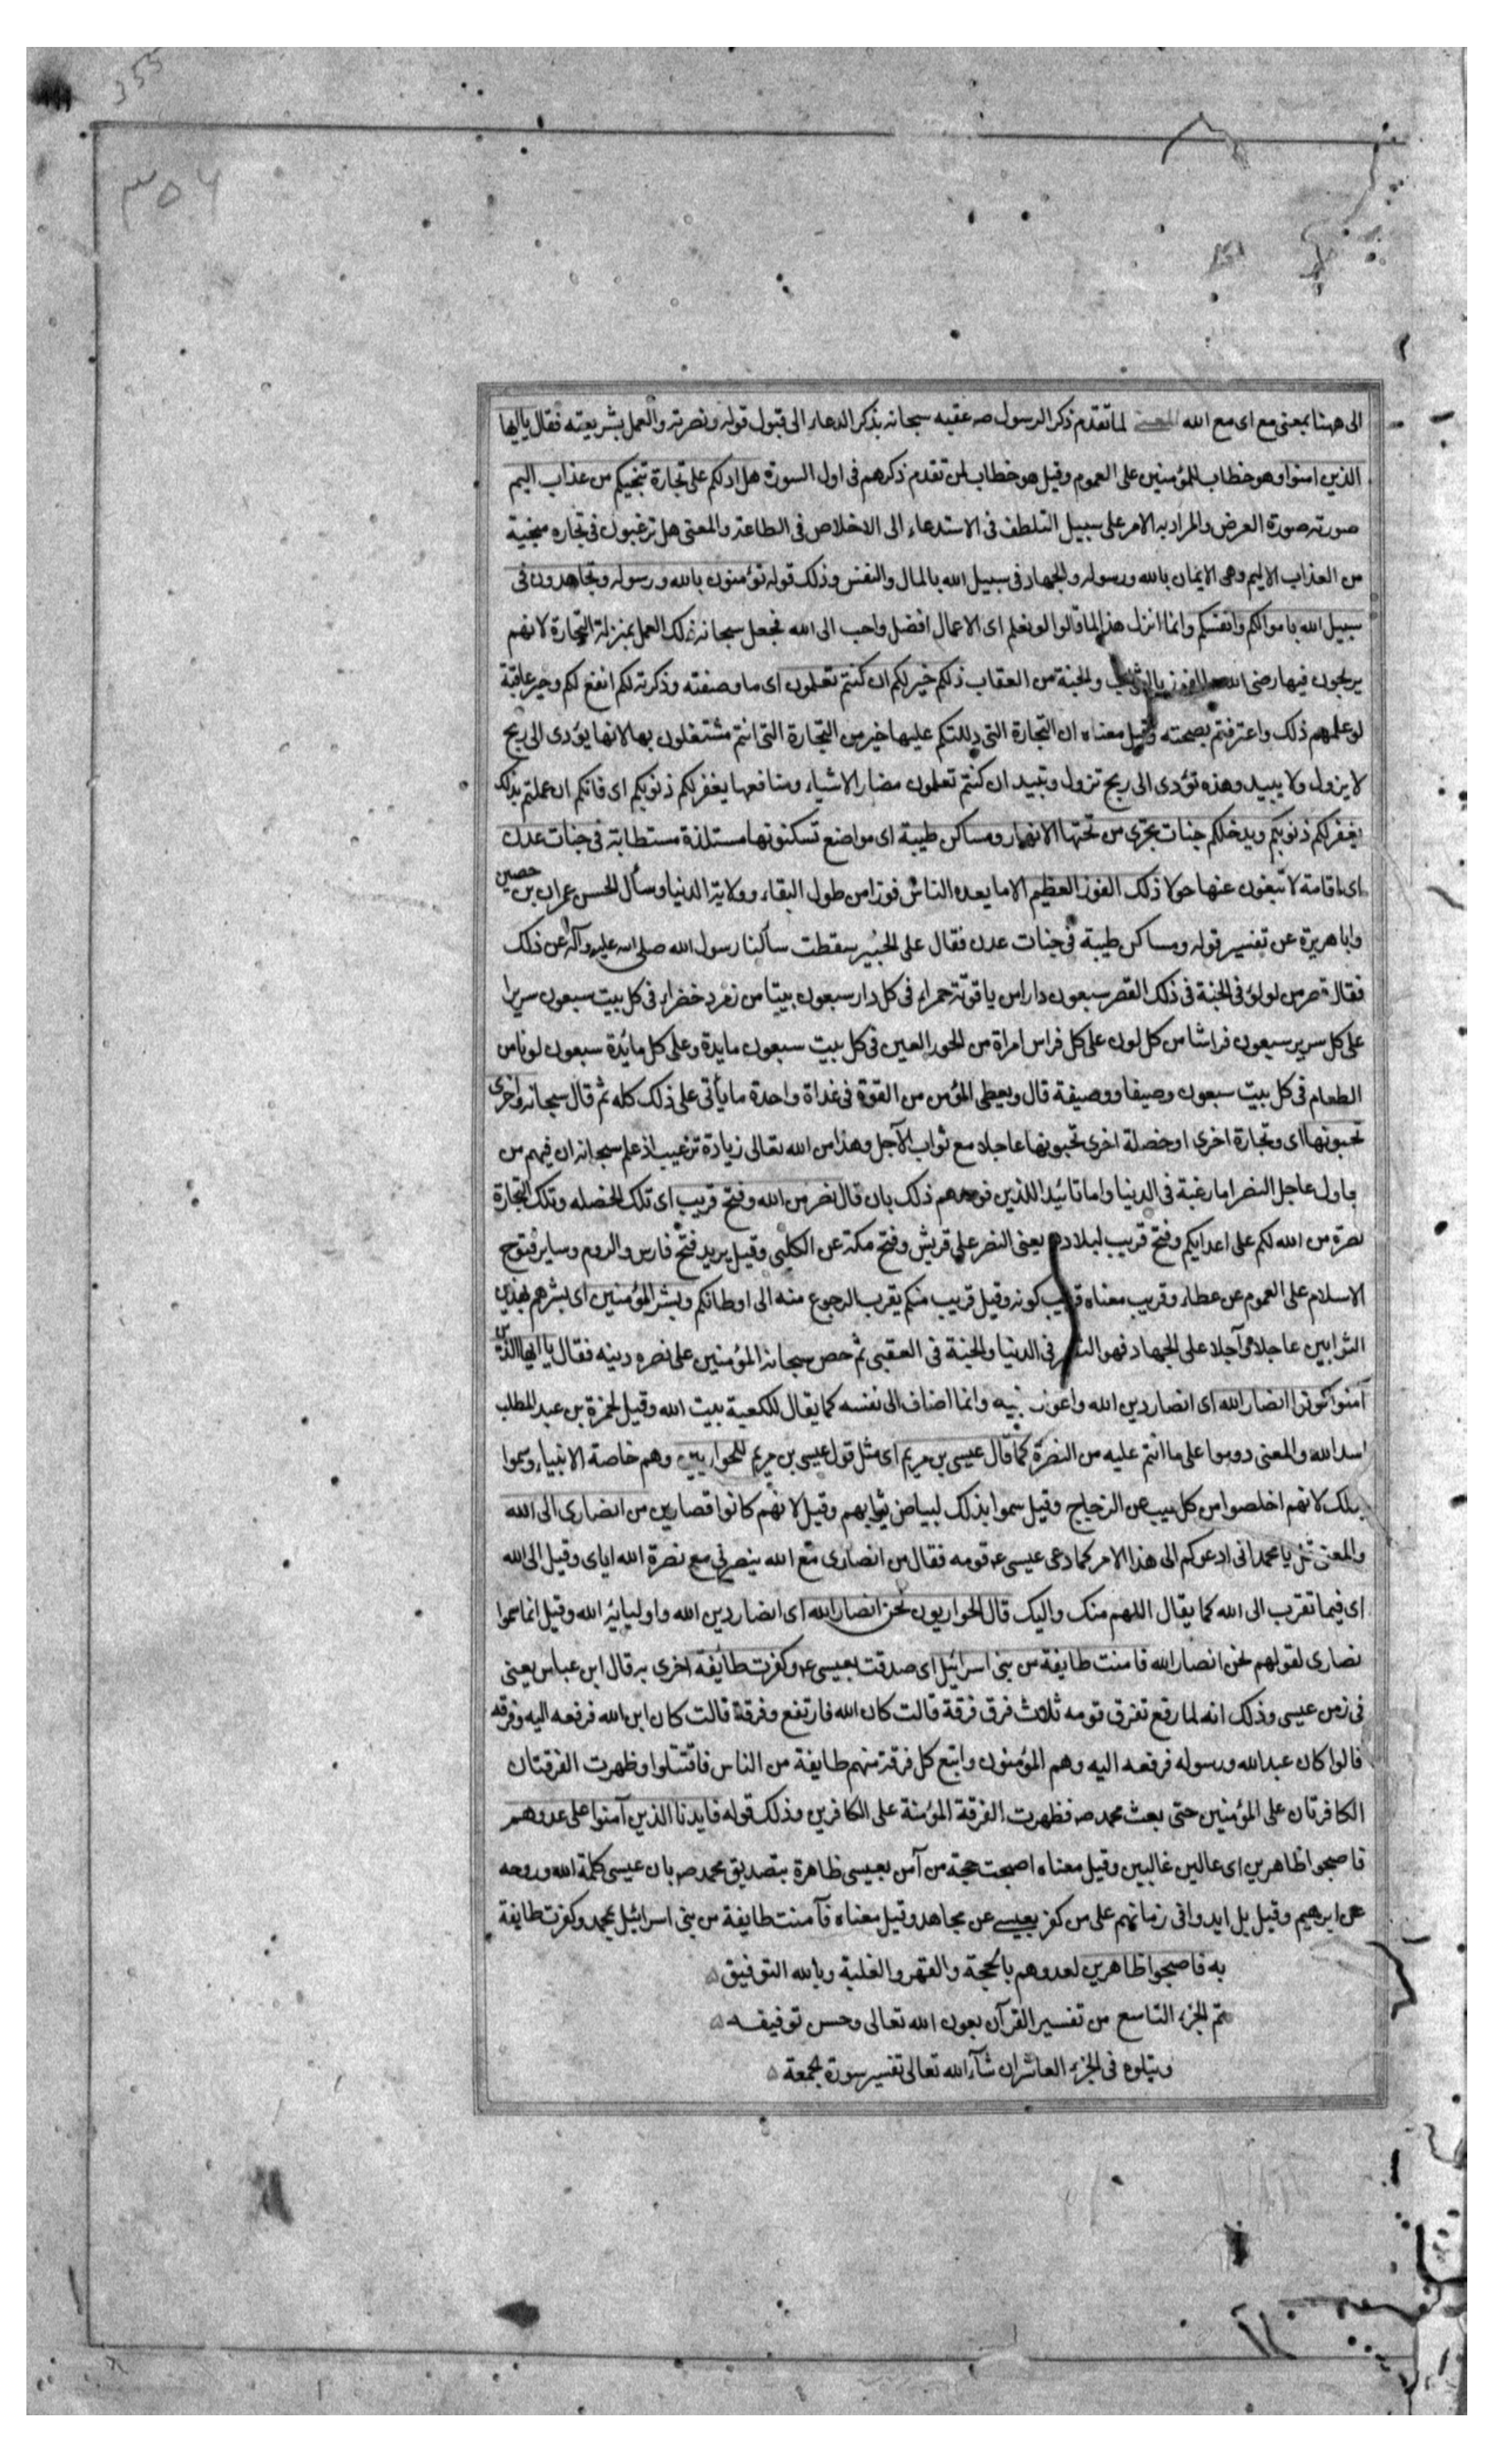 355
٣٥٤
الى ههنا بمعنى مع اى مع الله المعنى لما تقدم ذكر الرسول صه عقبه سبحانه بذكر الدعاء الى قبول قوله ونصرته والعمل بشريعته فقال يا ايها
الذين امنوا وهو خطاب للمؤمنين على العموم وقيل هو خطاب لمن تقدم ذكرهم فى اول السورة هل ادلكم على تجارة تنجيكم من عذاب اليم
صورته صورة العرض والمراد به الامر على سبيل التلطف فى الاستدعاء الى الاخلاص فى الطاعة والمعنى هل ترغبون فى تجاره منجية
من العذاب الاليم وهى الايمان بالله ورسوله والجهاد فى سبيل الله بالمال والنفس وذلك قوله تؤمنون بالله ورسوله وتجاهدون فى
سبيل الله باموالكم وانفسكم وانما انزل هذا لما قالوا لو نعلم اى الاعمال افضل واحب الى الله فجعل سبحانه ذلك العمل بمنزلة التجارة لانهم
يربحون فيها رضى الله والفوز بالثواب والجنة من العقاب ذلكم خير لكم ان كنتم تعلمون اى ما وصفته وذكرته لكم انفع لكم وخير عاقبة
لو علمهم ذلك واعترفتم بصحته وقيل معناه ان التجارة التى دللتكم عليها خير من التجارة التى انتم مشتغلون بها لانها يؤدى الى ربح
لا يزول ولا يبيد وهذه تؤدى الى ربح تزول وتبيد ان كنتم تعلمون مضار الاشياء ومنافعها يغفر لكم ذنوبكم اى فانكم ان عملتم بذلك
يغفر لكم ذنوبكم ويدخلكم جنات تجرى من تحتها الانهار ومساكن طيبة اى مواضع تسكنونها مستلذة مستطابة فى جنات عدن
اى اقامة لا تبغون عنها حولا ذلك الفوز العظيم الا ما يعده الناس فوزا من طول البقاء وولاية الدنيا وسأل الحسن عمران بن حصين
وابا هريرة عن تفسير قوله ومساكن طيبة فى جنات عدن فقال على الخبير سقطت سألنا رسول الله صلى الله عليه وآله عن ذلك
فقال قصر من لولؤ فى الجنة فى ذلك القصر سبعون دارا من ياقوتة حمراء فى كل دار سبعون بيتا من زمرد خضراء فى كل بيت سبعون سريرا
على كل سرير سبعون فراشا من كل لون على كل فراس امراة من الحور العين فى كل بيت سبعون مايدة وعلى كل مائدة سبعون لونا من
الطعام فى كل بيت سبعون وصيفا ووصيفة قال ويعطى المؤمن من القوة فى غداة واحدة ما يأتى على ذلك كله ثم قال سبحانه واخرى
تحبونها اى وتجارة اخرى او خصلة اخرى تحبونها عاجلا مع ثواب الآجل وهذا من الله تعالى زيادة ترغيب اذ علم سبحانه ان فيهم من
يحاول عاجل النصر اما رغبة فى الدنيا واما تائيدا للدين فوعدهم ذلك بان قال نصر من الله وفتح قريب اى تلك الخصله وتلك التجارة
نصرة من الله لكم على اعدايكم وفتح قريب لبلادهم يعنى النصر على قريش وفتح مكة عن الكلبى وقيل يريد فتح فارس والروم وساير فتوح
الاسلام على العموم عن عطاء وقريب معناه قريب كونه وقيل قريب منكم يقرب الرجوع منه الى اوطانكم وبشر المؤمنين اى بشرهم بهذين
الثوابين عاجلا وآجلا على الجهاد فهو النصر فى الدنيا والجنة فى العقبى ثم حض سبحانه المؤمنين على نصره دينه فقال يا ايها الذين
آمنوا كونوا انصار الله اى انصار دين الله واعوان نبيه وانما اضاف الى نفسه كما يقال للكعبة بيت الله وقيل لحمزة بن عبد المطلب
اسد الله والمعنى دوموا على ما انتم عليه من النصرة كما قال عيسى بن مريم اى مثل قول عيسى بن مريم للحواريين وهم خاصة الانبياء وسموا
بذلك لانهم اخلصوا من كل عيب عن الزجاج وقيل سموا بذلك لبياض ثيابهم وقيل لانهم كانوا قصارين من انصارى الى الله
والمعنى قل يا محمد انى ادعوكم الى هذا الامر كما دعى عيسى عه قومه فقال من انصارى مع الله ينصرنى مع نصرة الله اياى وقيل الى الله
اى فيما تقرب الى الله كما يقال اللهم منك واليك قال الحواريون نحن انصار الله اى انصار دين الله واوليائه الله وقيل انما سموا
نصارى لقولهم نحن انصار الله فامنت طايفة من بنى اسرائيل اى صدقت بعيسى عه وكفرت طايفة اخرى به قال ابن عباس يعنى
فى زمن عيسى وذلك انه لما رفع تفرق قومه ثلاث فرق فرقة قالت كان الله فارتفع وفرقة قالت كان ابن الله فرفعه اليه وفرقه
قالوا كان عبد الله ورسوله فرفعه اليه وهم المؤمنون واتبع كل فرقة منهم طايفة من الناس فاقتتلوا وظهرت الفرقتان
الكافرتان على المؤمنين حتى بعث محمد صه فظهرت الفرقة المؤمنة على الكافرين وذلك قوله فايدنا الذين آمنوا على عدوهم
فاصبحوا ظاهرين اى عالين غالبين وقيل معناه اصبحت حجة من آمن بعيسى ظاهرة بتصديق محمد صه بان عيسى كلمة الله وروحه
عن ابرهيم وقيل بل ايدوا فى زمانهم على من كفر بعيسى عن مجاهد وقيل معناه فآمنت طايفة من بنى اسرائيل بمحمد وكفرت طايفة
به فاصبحوا ظاهرين لعدوهم بالحجة والقهر والغلبة وبالله التوفيق
تم الجزء التاسع من تفسير القرآن بعون الله تعالى وحسن توفيقه
ويتلوه فى الجزء العاشر ان شآء الله تعالى تفسير سورة الجمعة